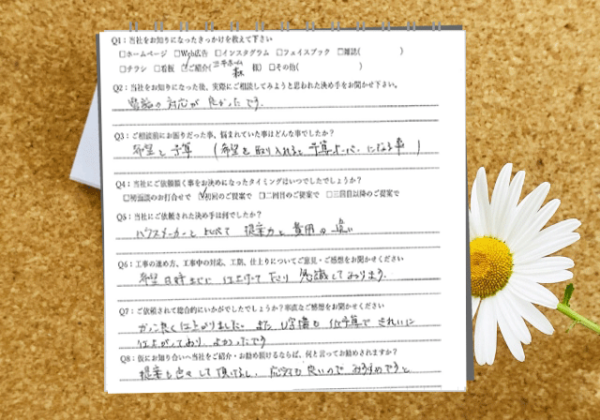 Q1：当社をお知りになったきっかけを教えて下さい
□ホームページ □Web広告 □インスタグラム □フェイスブック □雑誌( )
□チラシ □看板 ☑ご紹介( 様) □その他( )
Q2：当社をお知りになった後、実際にご相談してみようと思われた決め手をお聞かせ下さい。
の対応が良かったです.
Q3：ご相談前にお困りだった事、悩まれていた事はどんな事でしたか？
希望と予算 (希望を取り入れると予算オーバーになる事)
Q4：当社にご依頼頂く事をお決めになったタイミングはいつでしたでしょうか？
□初面談のお打合せで ☑初回のご提案で □二回目のご提案で □三回目以降のご提案で
Q5：当社にご依頼された決め手は何でしたか？
ハウスメーカーと 提案力と費用の違い
Q6：工事の進め方、工事中の対応、工期、仕上りについてご意見・ご感想をお聞かせください
希望日時までに仕上げて 感謝しております.
Q7：ご依頼されて総合的にいかがでしたでしょうか？率直なご感想をお聞かせください
良く仕上がりました。また 予算できれいに
仕上がっており、よかったです
Q8：仮にお知り合いへ当社をご紹介・お勧め頂けるならば、何と言ってお勧めされますか？
提案も色々して頂けるし、対応も良いのでおすすめですと